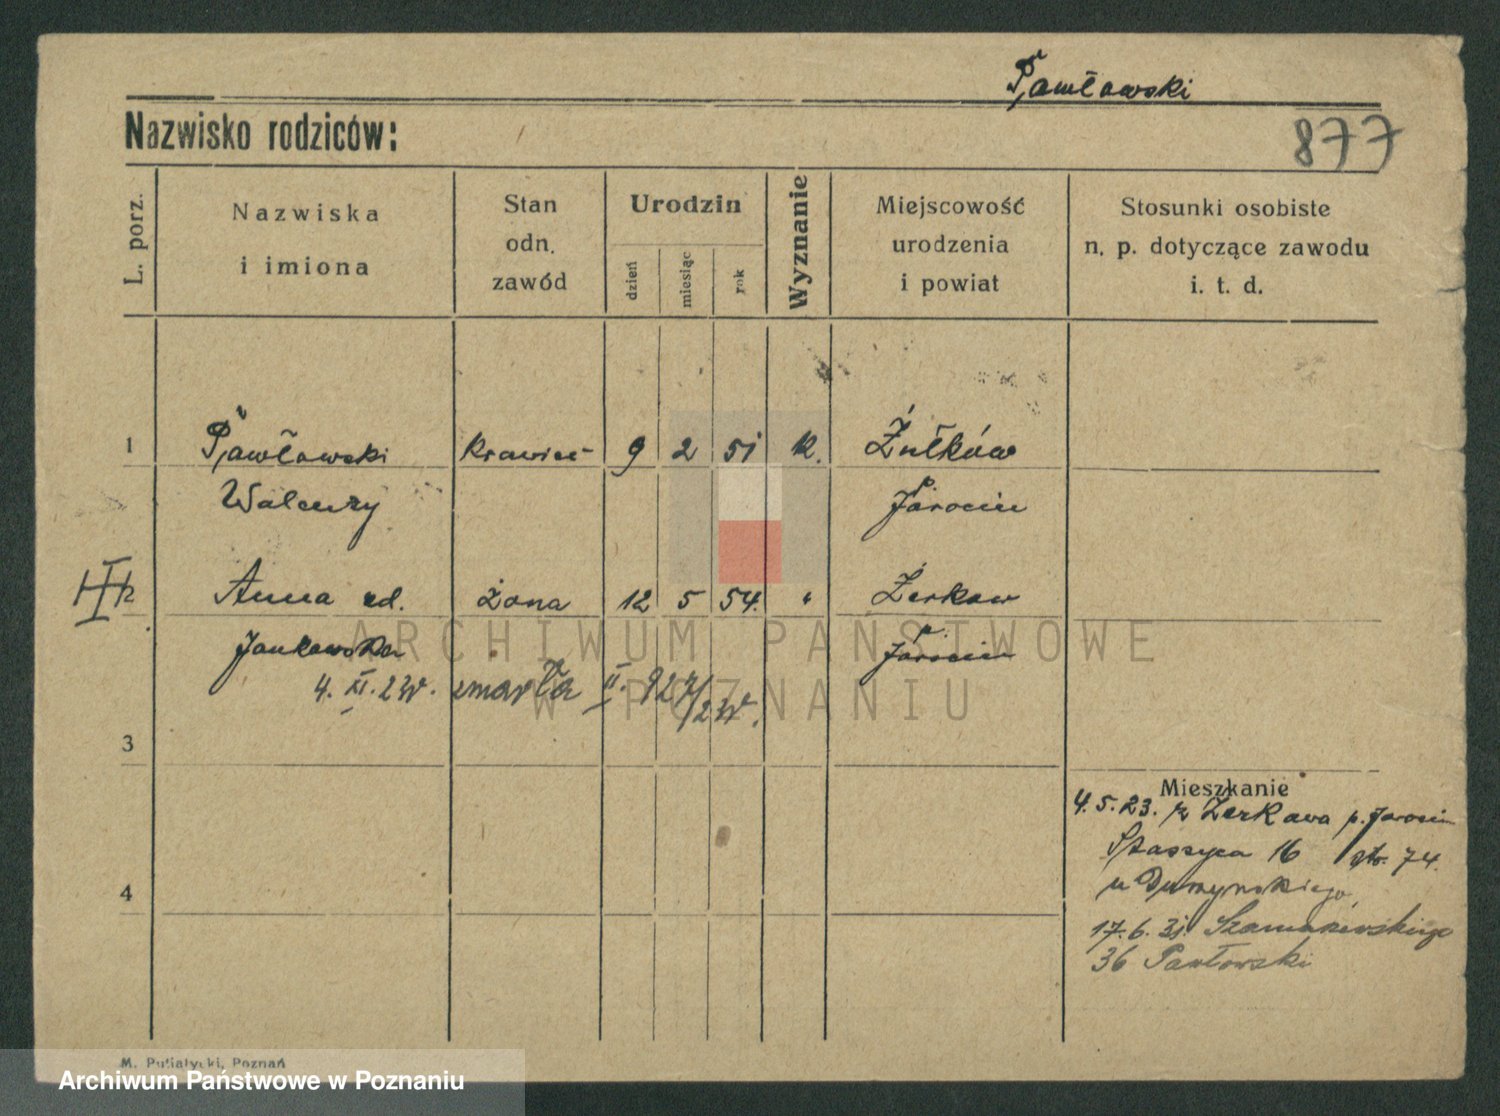 Pawłowski
Nazwisko rodziców:
877
L. porz.
Nazwiska
i imiona
Stan
odn.
zawód
Urodzin
dzień
miesiąc
rok
Wyznanie
Miejscowość
urodzenia
i powiat
Stosunki osobiste
n. p. dotyczące zawodu
i. t. d.
1 Pawłowski krawiec 9 2 51 k. Żułków
Walenty Jarocin
2 Anna żona 12 5 54. " Żerkow
Jankowska Jarocin
4. XI. 2W. zmarła II. 927/2W.
3
Mieszkanie
4.5.23. z Żerkowa p. Jarocin
Staszyca 16 str. 74.
u Duszyńskiego
17.6.31.
36 Pawłowski
4
M. Putiatycki, Poznań
ARCHIWUM PAŃSTWOWE
W POZNANIU
Archiwum Państwowe w Poznaniu